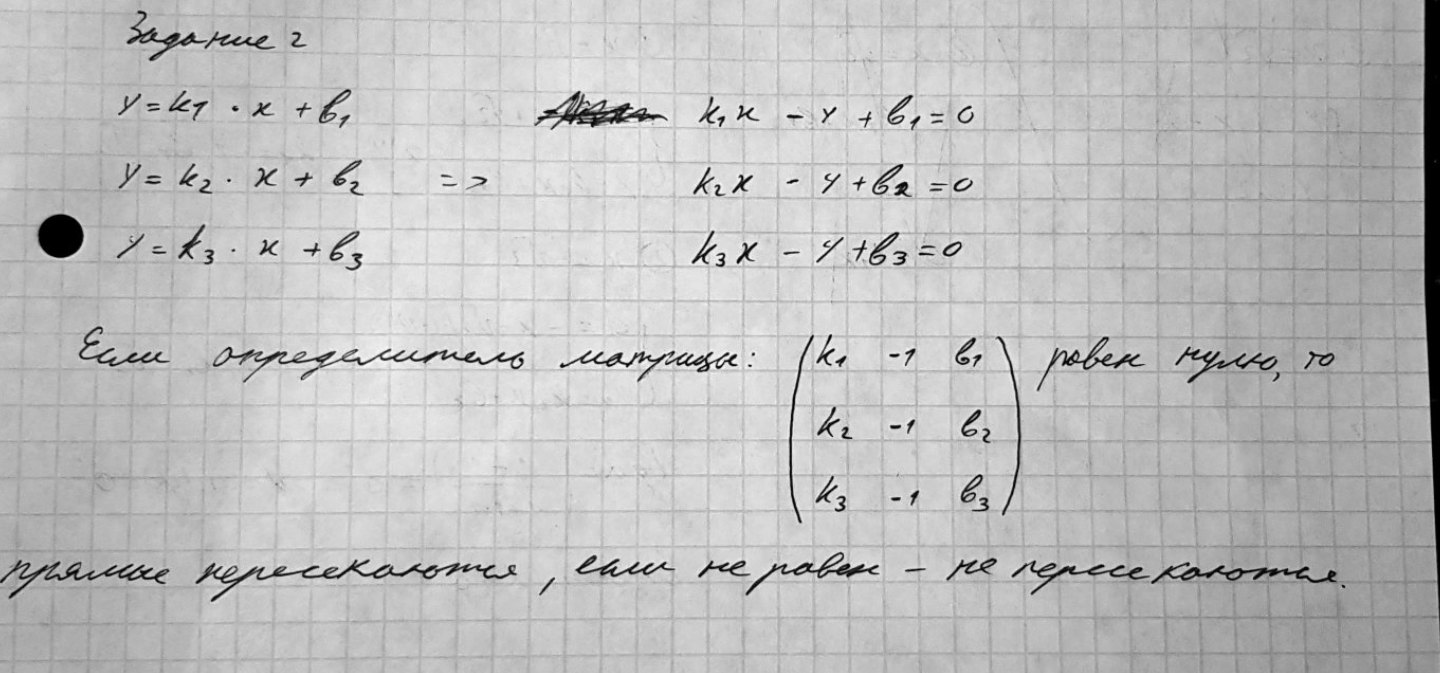 Задание 2
y = k1 · x + b1 k1x - y + b1 = 0
y = k2 · x + b2 => k2x - y + b2 = 0
y = k3 · x + b3 k3x - y + b3 = 0
Если определитель матрицы: ( k1 -1 b1 ) равен нулю, то
k2 -1 b2
k3 -1 b3
прямые пересекаются, если не равен - не пересекаются.